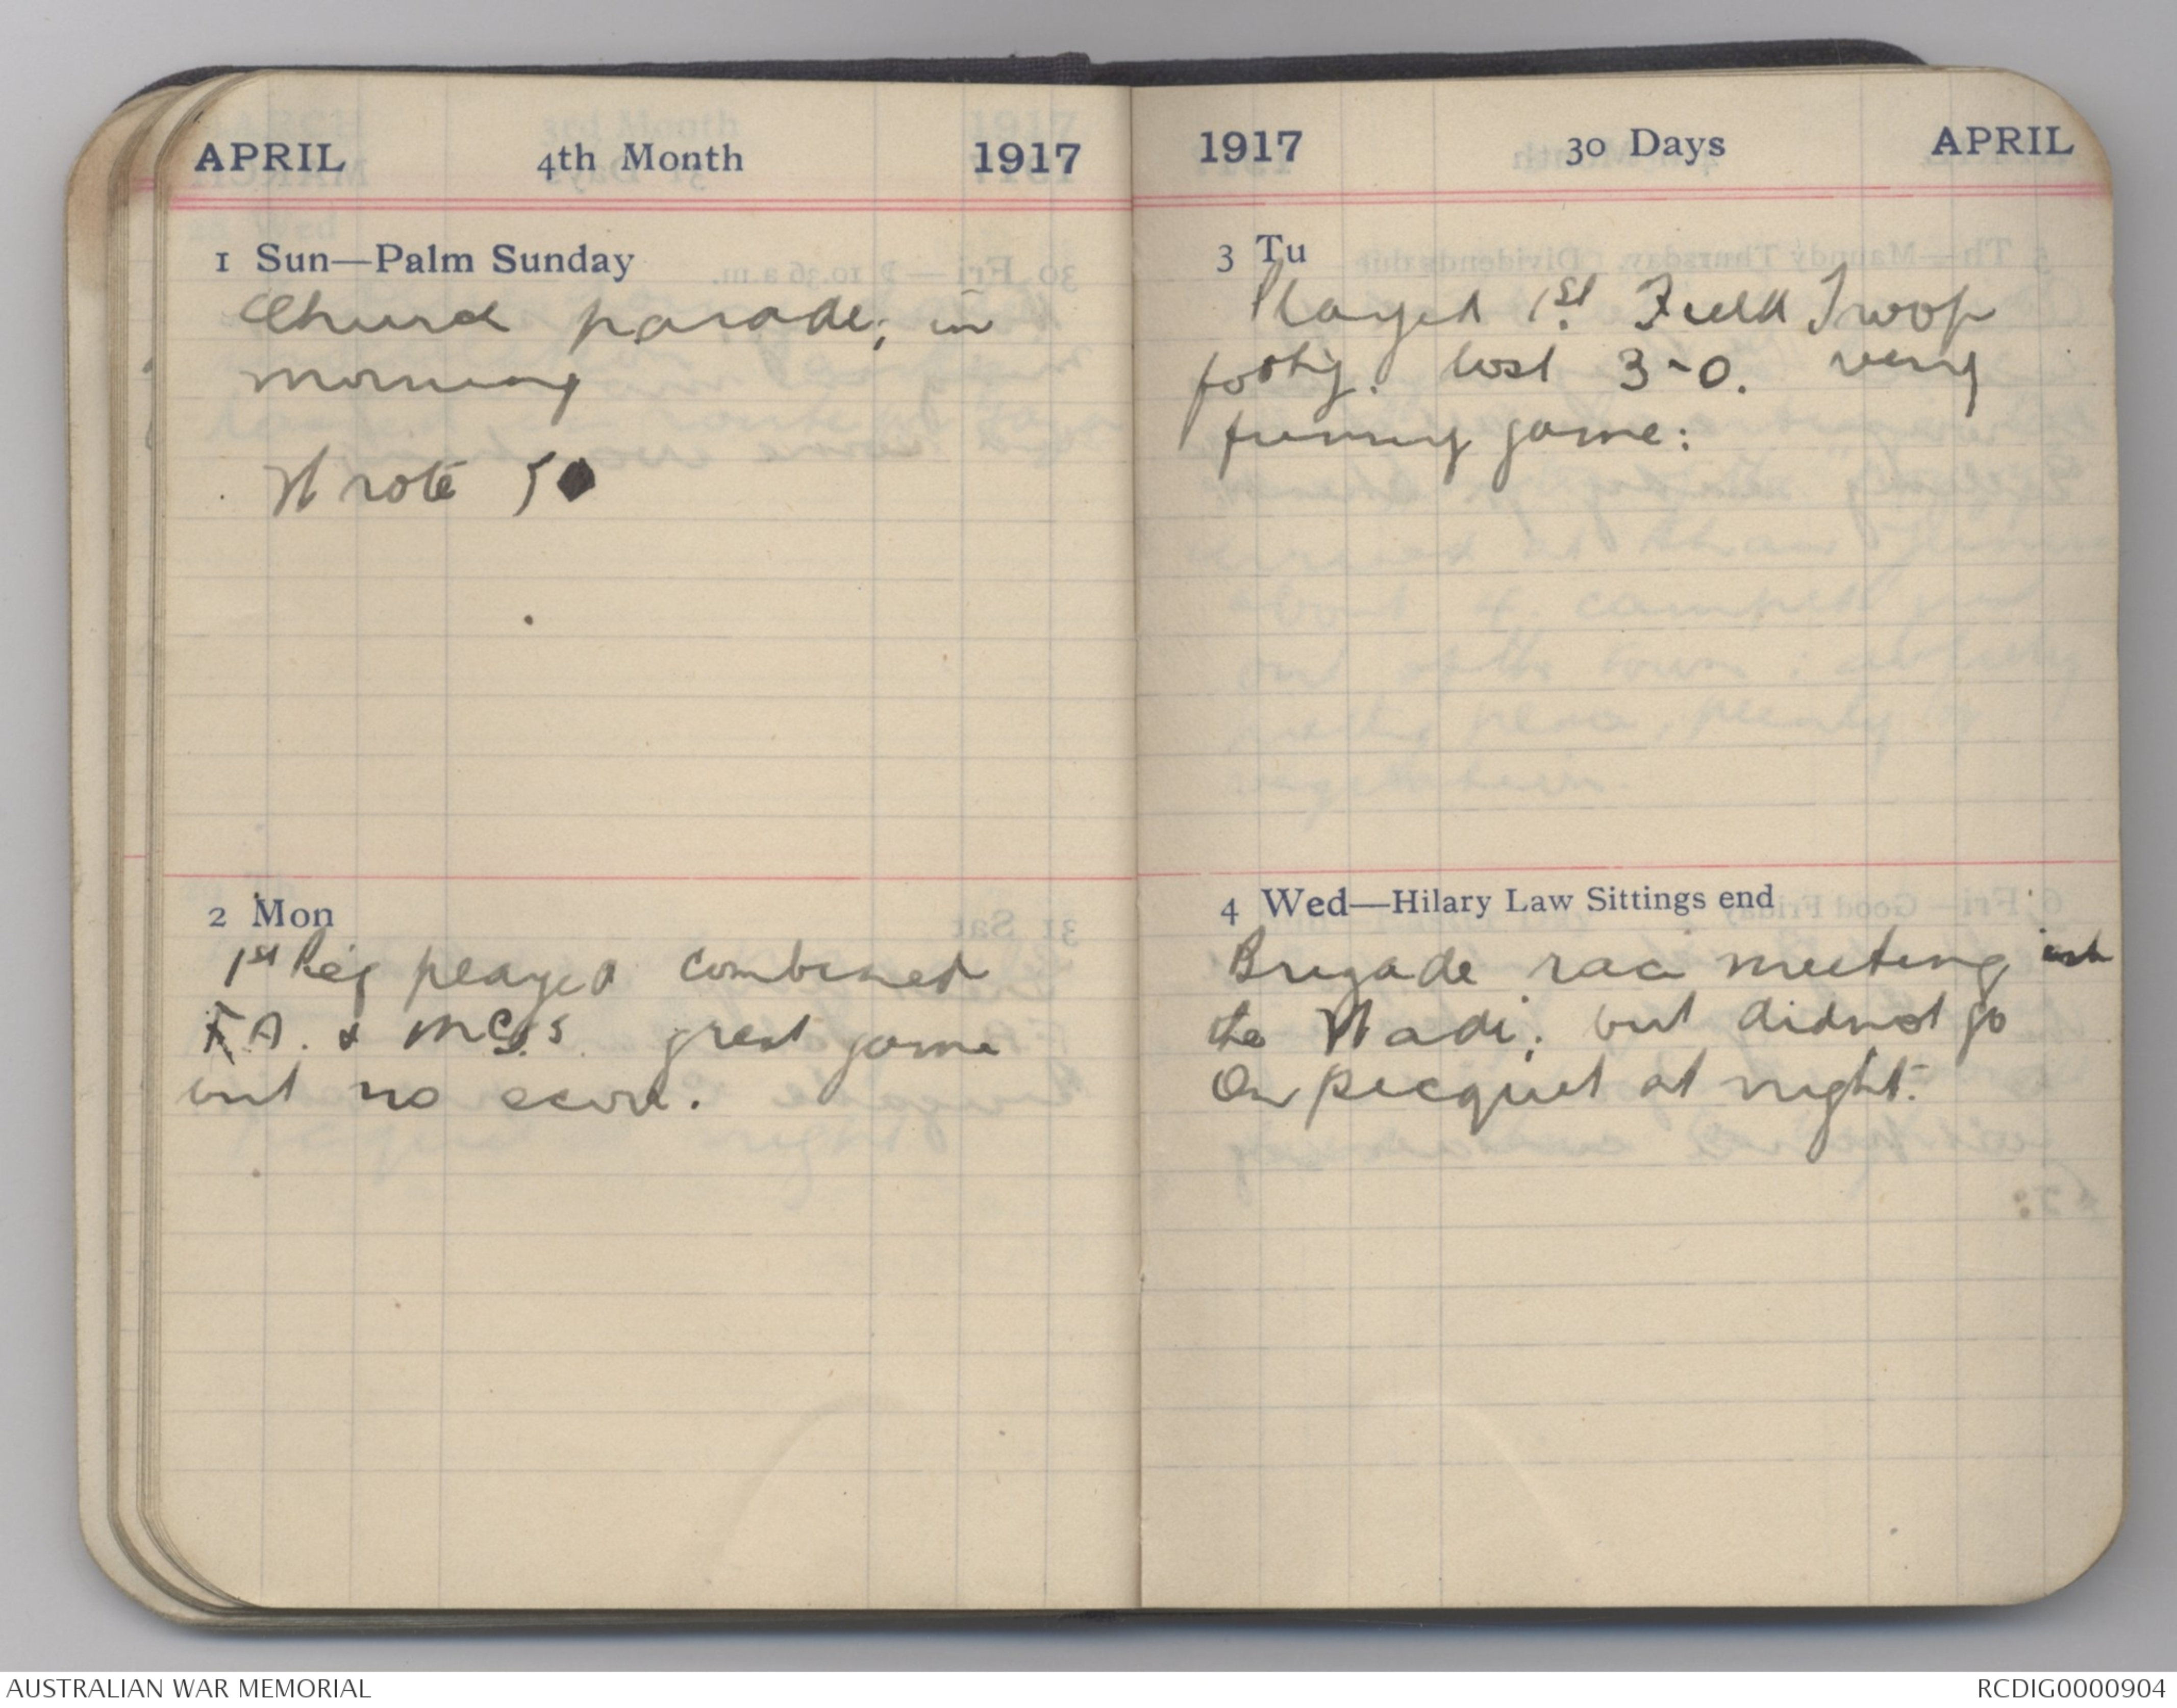 APRIL 4th Month 1917
1 Sun—Palm Sunday
Church parade; in
morning
Wrote 5
2 Mon
1st Reg played combined
F.A. & MGS. great game
but no score.
1917 30 Days APRIL
3 Tu
Played 1st Field Troop
footy. lost 3-0. very
funny game:
4 Wed—Hilary Law Sittings end
Brigade race meeting in
the Wadi; but didnot go
On picquet at night.
AUSTRALIAN WAR MEMORIAL
RCDIG0000904